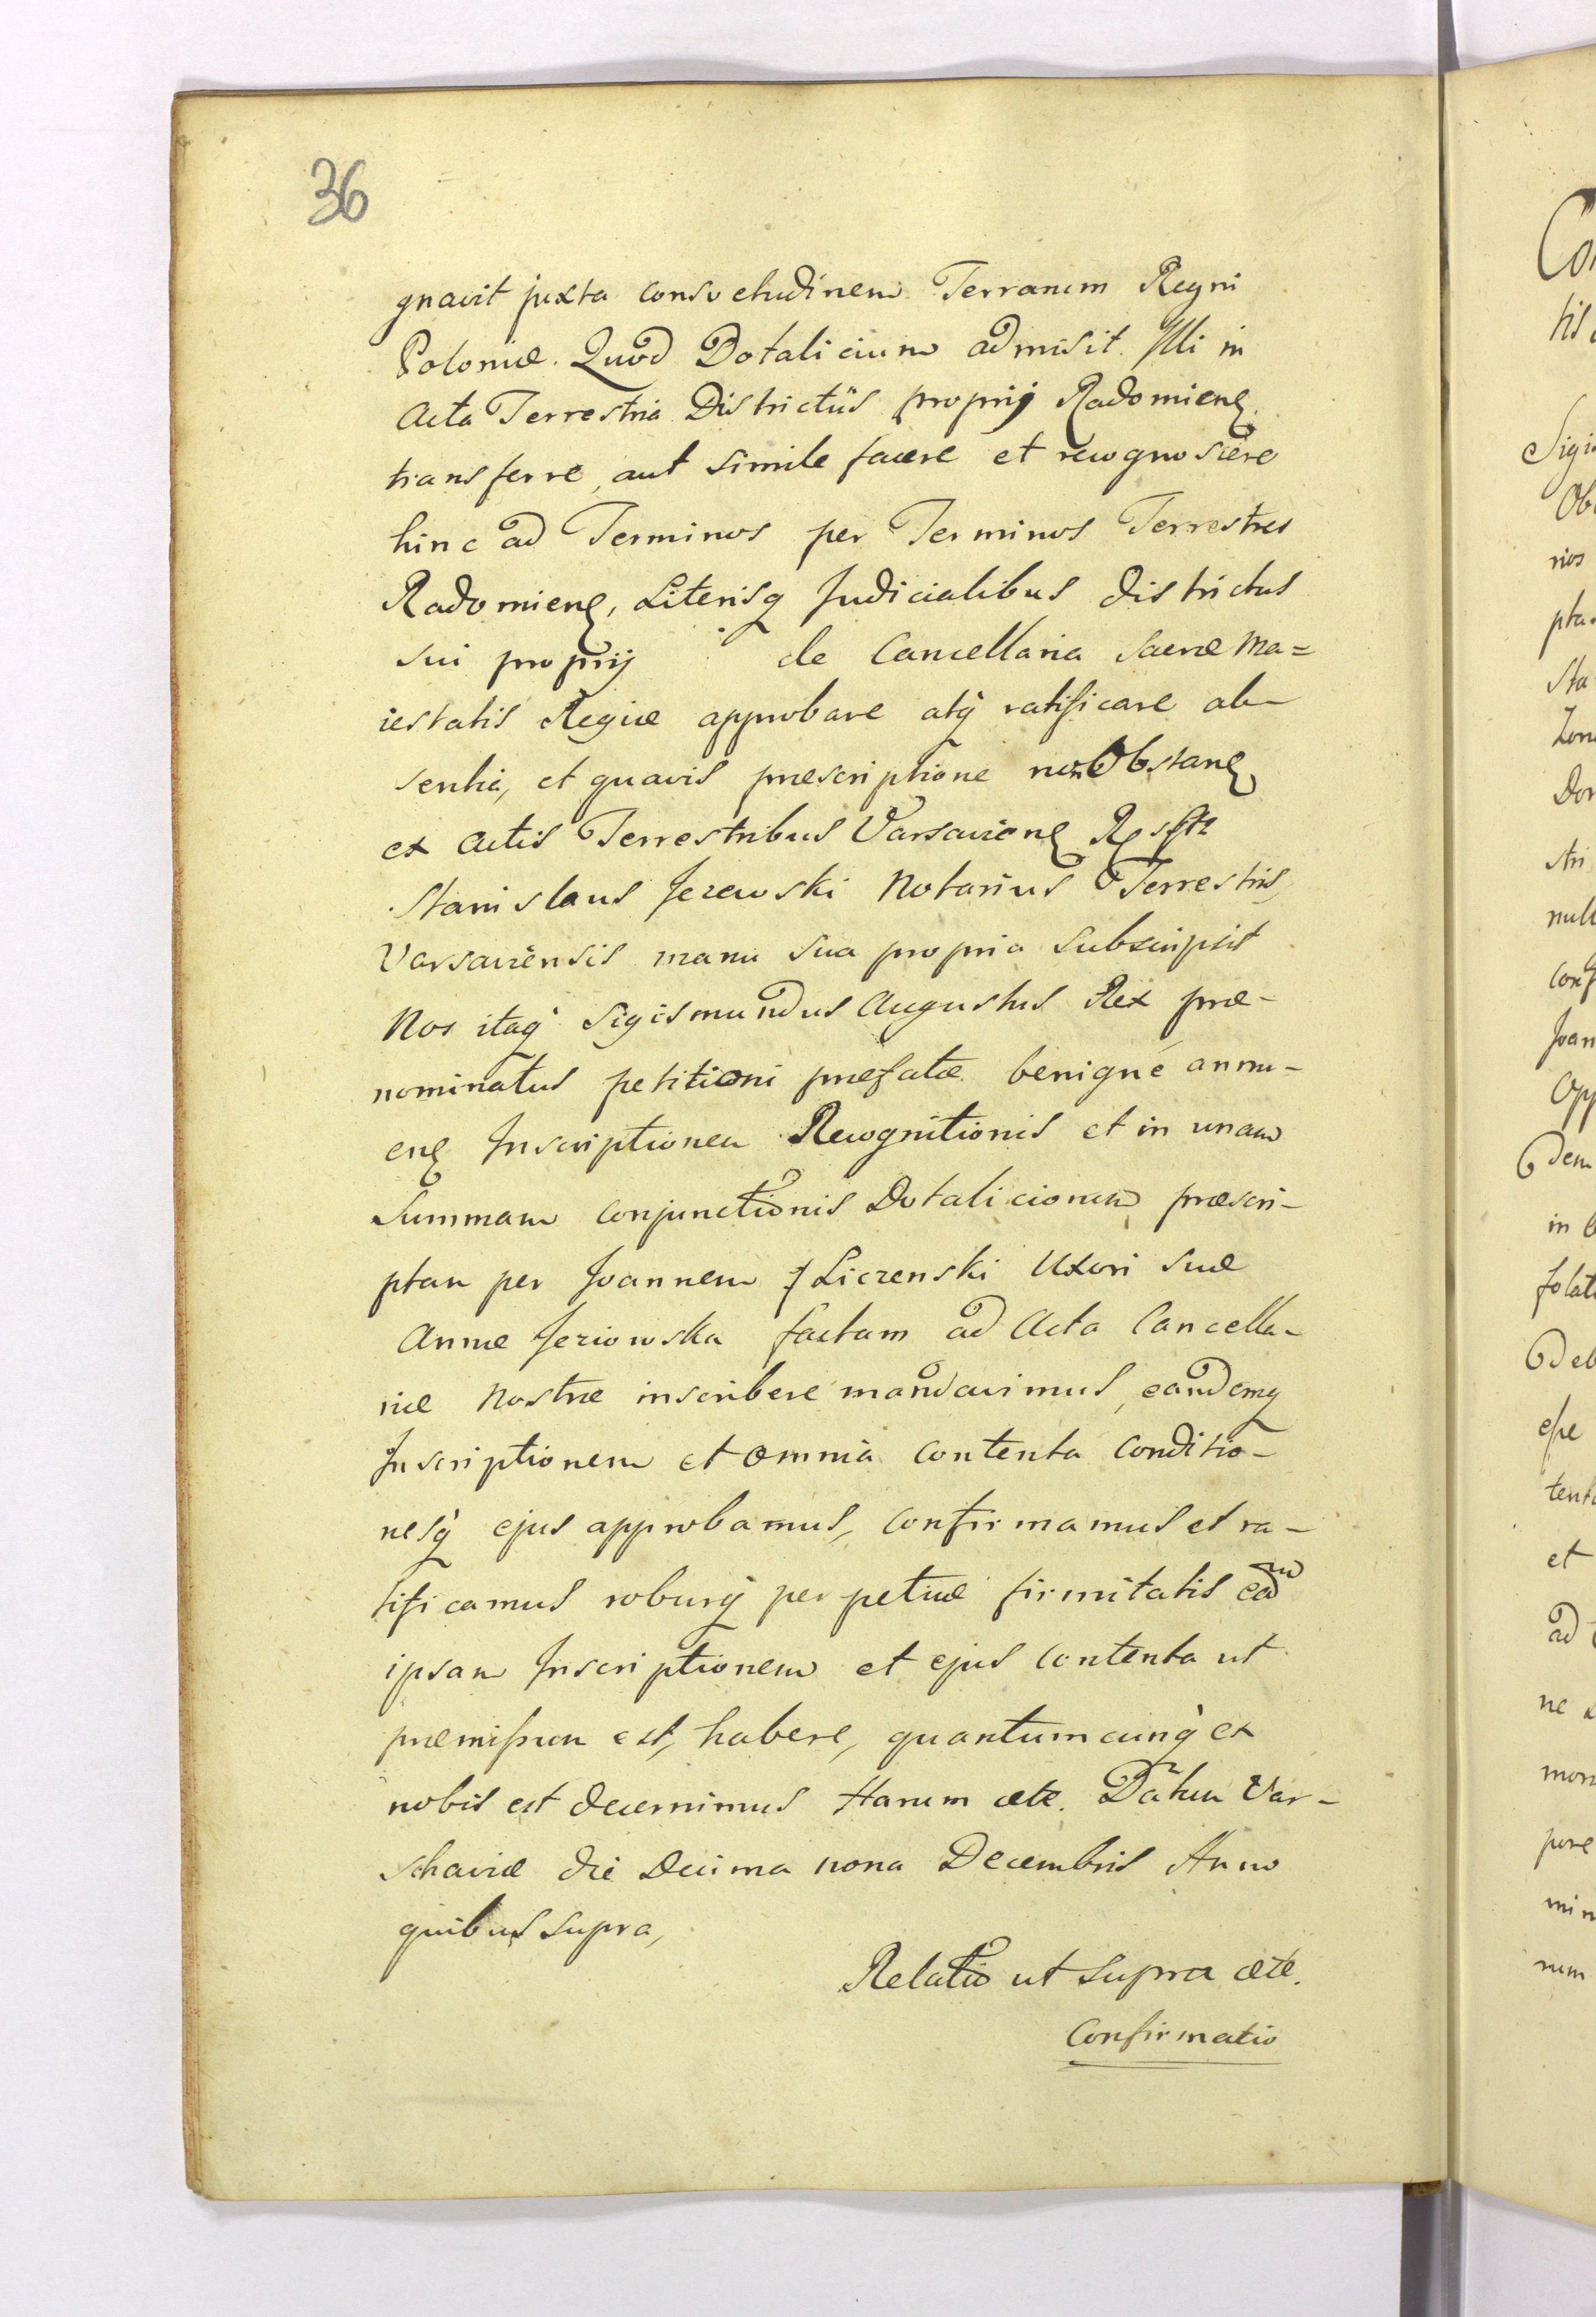 36
gnavit juxta consvetudinem Terrarum Regni
Poloniæ. Quod Dotalicium admisit. Illi in
Acta Terrestria Districtûs proprij Radomienꝭ
transferre, aut simile facere et recognoscere
hinc ad Terminos per Terminos Terrestres
Radomienꝭ, Literisq Judicialibus districtus
sui proprij de Cancellaria sacræ Ma=
iestatis Regiæ approbare atq̀ ratificare ab-
sentia, et quavis præscriptione non Obstanꝭ
ex Actis Terrestribus Varsavienꝭ
Stanislaus Jezewski Notarius Terrestris
Varsaviensis manu sua propria subscripsit
Nos itaq̀ Sigismundus Augustus Rex præ-
nominatus petitioni præfatæ benignè annu-
enꝭ Inscriptionem Recognitionis et in unam
Summam conjunctionis Dotaliciorum præscri-
ptam per Joannem Liczenski Uxori suæ
Annæ Jeziowska factam ad Acta Cancella-
riæ Nostræ inscribere mandavimus, eandemq
Inscriptionem et omnia contenta conditio-
nesq̀ ejus approbamus, confirmamus et ra-
tificamus roburq̀ perpetuæ firmitatis eam
ipsam Inscriptionem et ejus contenta ut
præmissum est, habere, quantumcunq̀ ex
nobis est decernimus Harum etc. Dātum Var-
schaviæ die Decima nona Decembris Anno
quibus supra,
Relatio ut supra etc.
Confirmatio